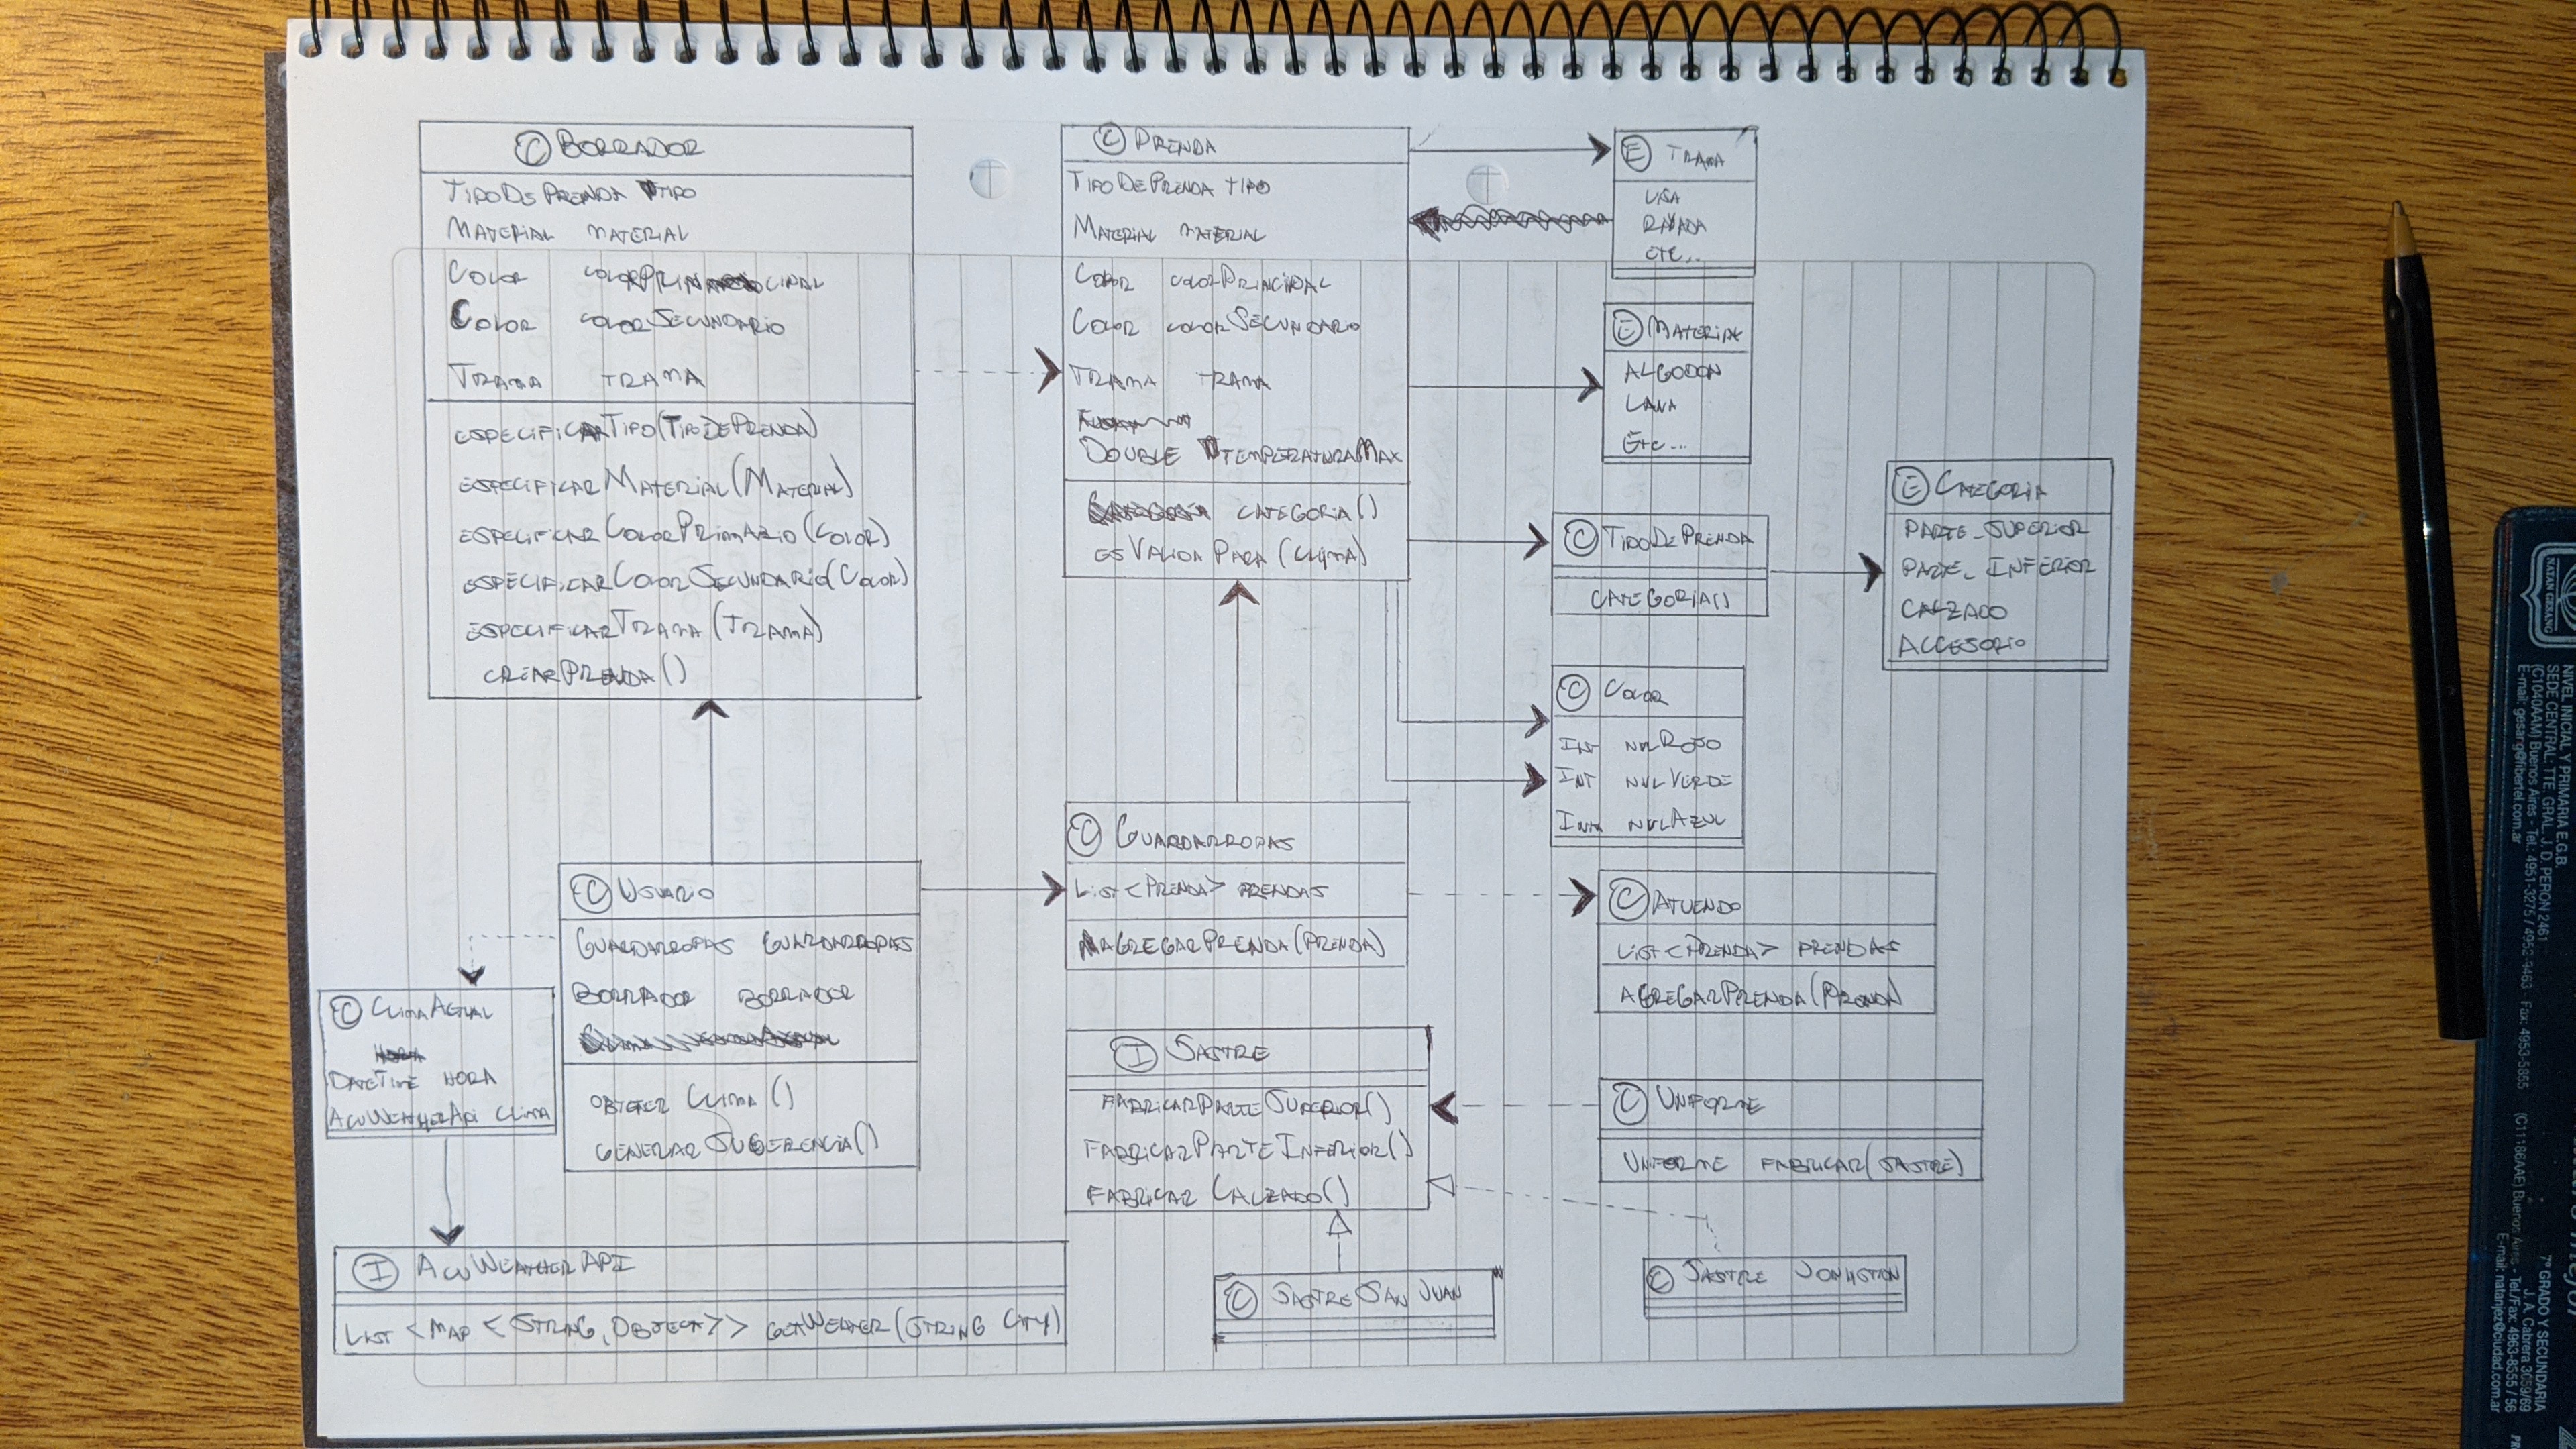 C BORRADOR
TIPODEPRENDA TIPO
MATERIAL MATERIAL
COLOR COLORPRINCIPAL
COLOR COLORSECUNDARIO
TRAMA TRAMA
ESPECIFICARTIPO(TIPODEPRENDA)
ESPECIFICARMATERIAL(MATERIAL)
ESPECIFICARCOLORPRIMARIO(COLOR)
ESPECIFICARCOLORSECUNDARIO(COLOR)
ESPECIFICARTRAMA(TRAMA)
CREARPRENDA()
C PRENDA
TIPODEPRENDA TIPO
MATERIAL MATERIAL
COLOR COLORPRINCIPAL
COLOR COLORSECUNDARIO
TRAMA TRAMA
DOUBLE TEMPERATURAMAX
CATEGORIA()
ESVALIDAPARA(CLIMA)
E TRAMA
LISA
RAYADA
ETC...
E MATERIAL
ALGODON
LANA
ETC...
C TIPODEPRENDA
CATEGORIA()
E CATEGORIA
PARTE_SUPERIOR
PARTE_INFERIOR
CALZADO
ACCESORIO
C COLOR
INT NVLROJO
INT NVLVERDE
INT NVLAZUL
C USUARIO
GUARDARROPAS GUARDARROPAS
BORRADOR BORRADOR
OBTENER CLIMA()
GENERAR SUGERENCIA()
C GUARDARROPAS
LIST<PRENDA> PRENDAS
AGREGARPRENDA(PRENDA)
C ATUENDO
LIST<PRENDA> PRENDAS
AGREGARPRENDA(PRENDA)
C CLIMAACTUAL
DATETIME HORA
ACUWEATHERAPI CLIMA
I SASTRE
FABRICARPARTESUPERIOR()
FABRICARPARTEINFERIOR()
FABRICAR CALZADO()
C UNIFORME
UNIFORME FABRICAR(SASTRE)
I ACUWEATHERAPI
LIST<MAP<STRING,OBJECT>> GETWEATHER(STRING CITY)
C SASTRESAN JUAN
C SASTRE JONHSTON
NATAN GESANG
NIVEL INICIAL Y PRIMARIA E.G.B.
SEDE CENTRAL: TTE. GRAL. J. D. PERON 2461
(C1040AAM) Buenos Aires - Tel.: 4951-3275 / 4952-9463 Fax: 4953-5855
E-mail: gesang@fibertel.com.ar
7º GRADO Y SECUNDARIA
J. A. Cabrera 3059/69
(C1186AAE) Buenos Aires - Tel./Fax: 4963-8555 / 56
E-mail: natanjez@ciudad.com.ar